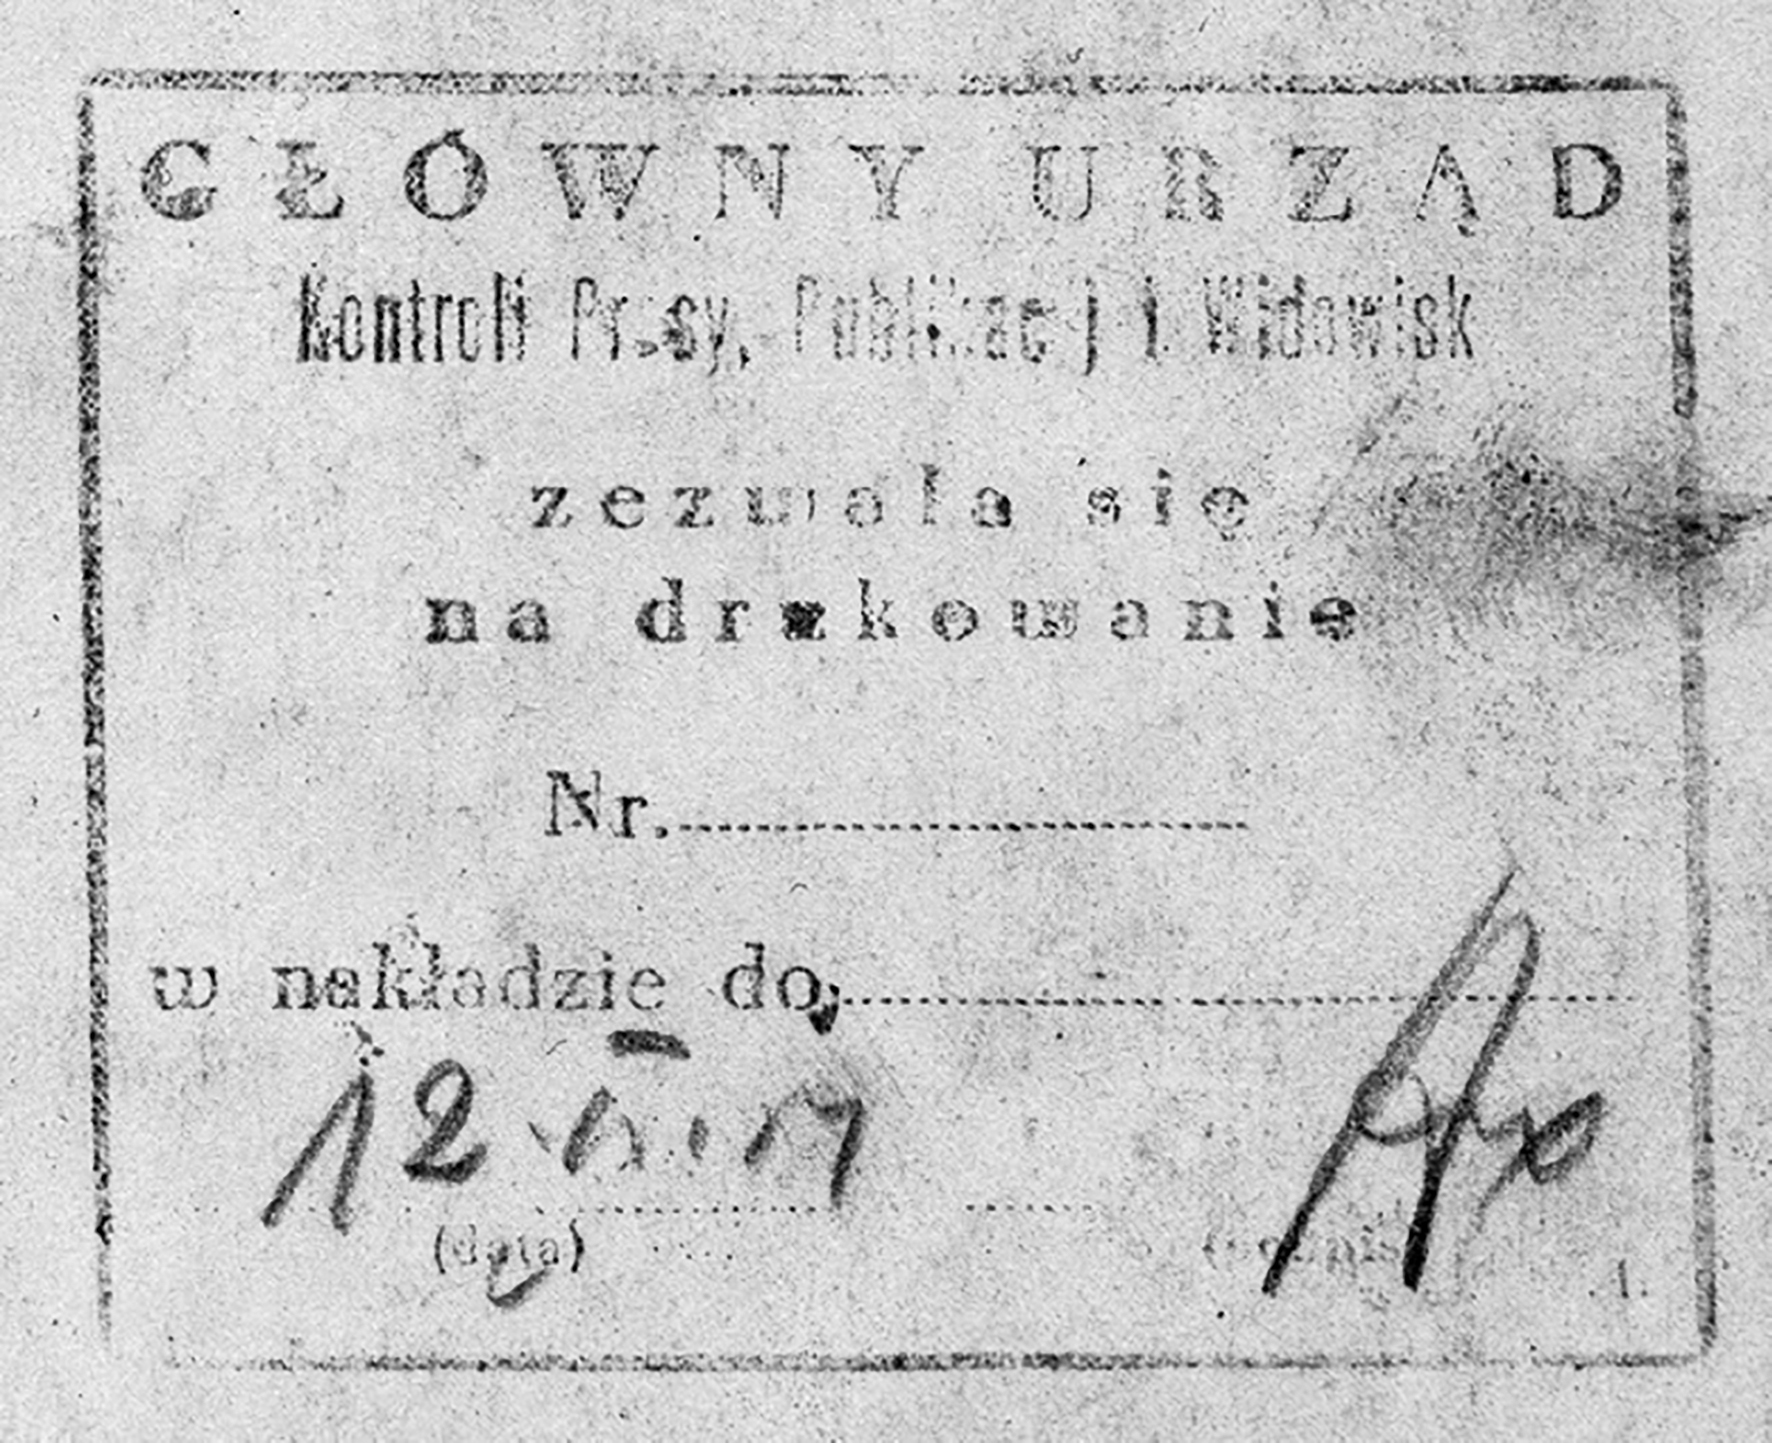 GŁÓWNY URZĄD
Kontroli Prasy, Publikacej i Widowisk
zezwala się
na drukowanie
Nr.
w nakładzie do
12
(data)
(podpis)